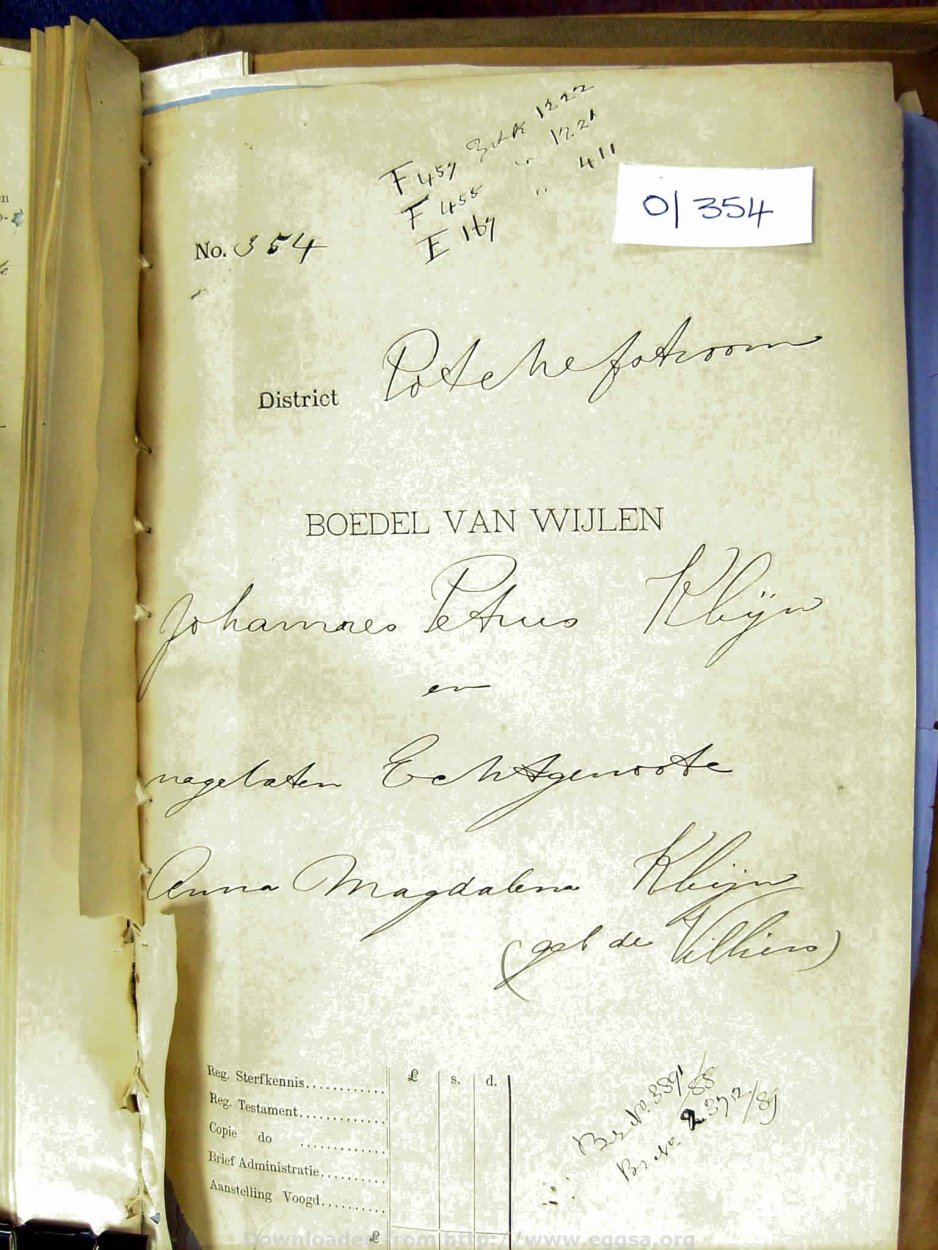 F 457 1222
F 455 " 1221
E 167 " 411
0/354
No. 354
District Potchefstroom
BOEDEL VAN WIJLEN
Johannes Petrus Kleijn
en
nagelaten Echtgenoote
Anna Magdalena Kleijn
(geb de Villiers)
£ s. d.
Reg. Sterfkennis............
Reg. Testament............
Copie do ............
Brief Administratie.........
Aanstelling Voogd.........
£
Br. No. 3891/88
Br. No. 2372/89
Downloaded from http://www.eggsa.org